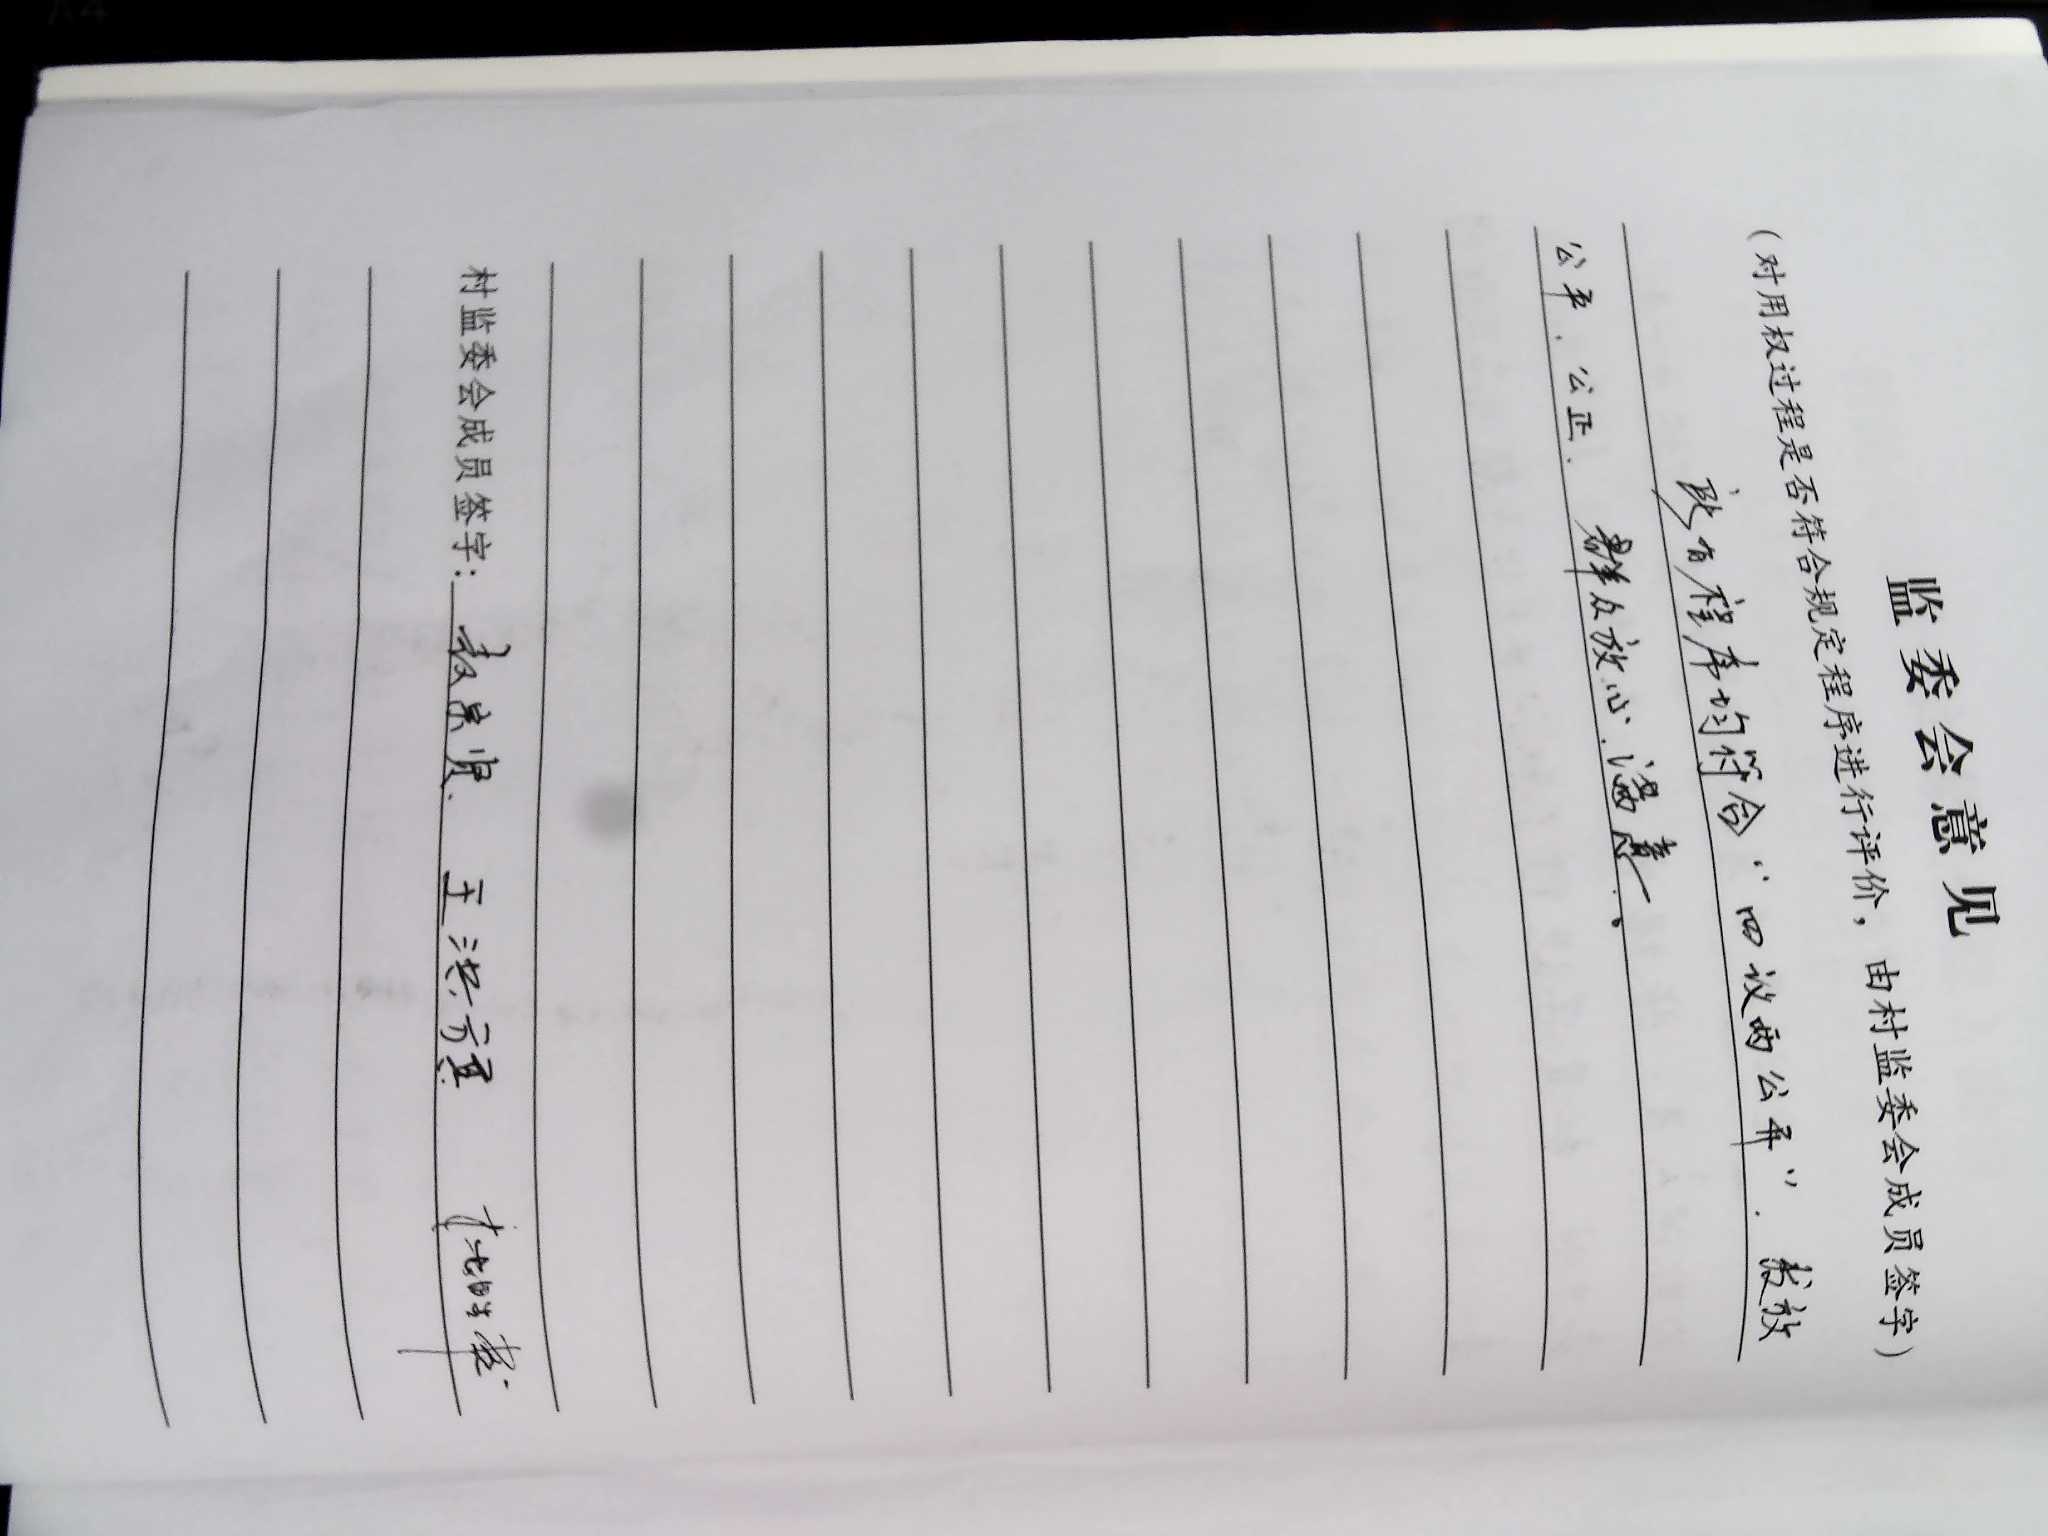 监委会意见
（对用权过程是否符合规定程序进行评价，由村监委会成员签字）
所有程序均符合“四议两公开”. 发放
公平. 公正. 群众放心. 满意。
村监委会成员签字： 王洪